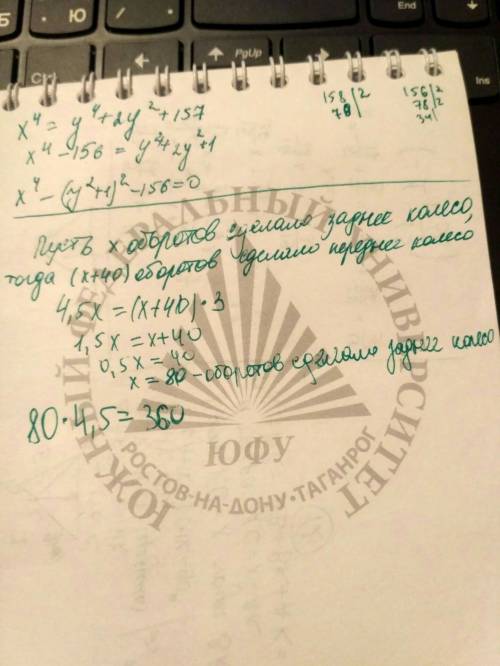 Б
Ю
End
Ctrl
PgUp
158|2
78|
156|2
78|2
34|
x⁴ = y⁴+2y²+157
x⁴ -156 = y⁴+2y²+1
x⁴ - (y²+1)² -156=0
Пусть x оборотов сделало заднее колесо,
тогда (x+40) оборотов сделало переднее колесо
4,5x = (x+40)·3
1,5x = x+40
0,5x = 40
x = 80 - оборотов сделало заднее колесо
80·4,5 = 360
ЮЖНЫЙ ФЕДЕРАЛЬНЫЙ УНИВЕРСИТЕТ
ЮФУ
РОСТОВ-НА-ДОНУ·ТАГАНРОГ